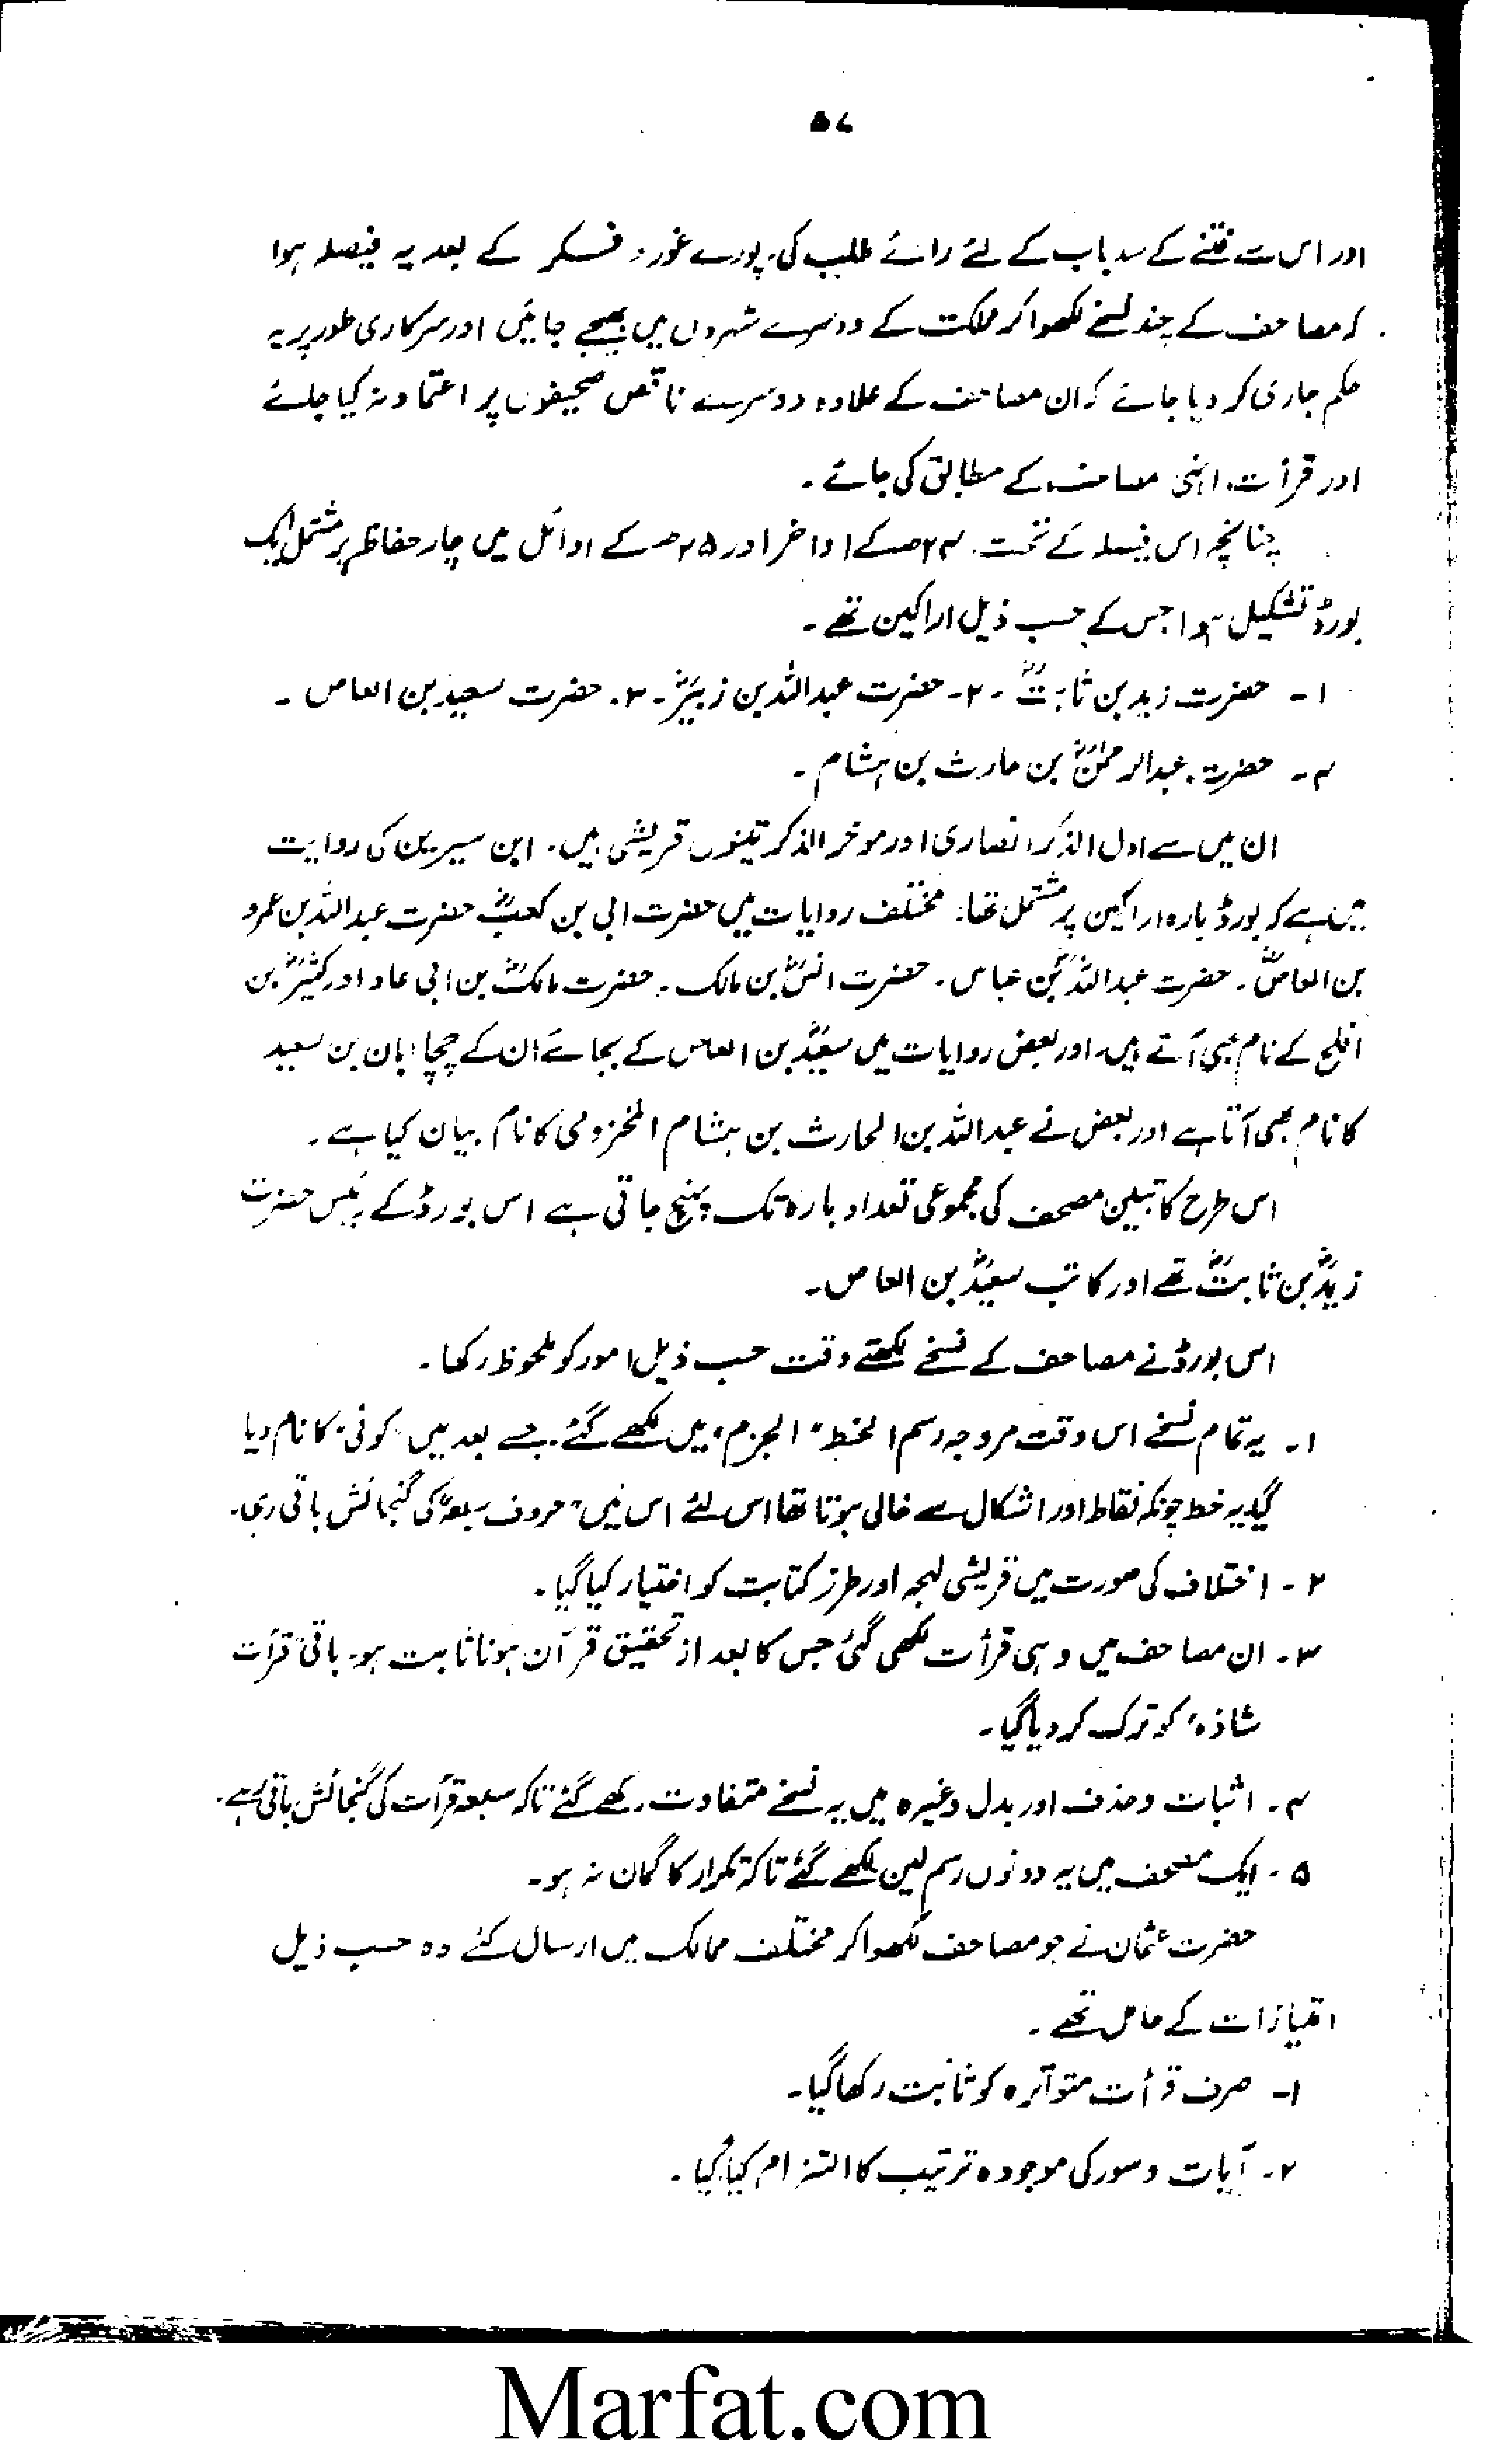 ۵۷
اور اس سے فتنے کے سدباب کے لئے رائے طلب کی۔ پورے غور و فکر کے بعد یہ فیصلہ ہوا
کہ مصاحف کے چند نسخے لکھوا کر مملکت کے دوسرے شہروں میں بھیجے جائیں اور سرکاری طور پر یہ
حکم جاری کر دیا جائے کہ ان مصاحف کے علاوہ دوسرے ناقص صحیفوں پر اعتماد نہ کیا جائے
اور قرأت انہی مصاحف کے مطابق کی جائے۔
چنانچہ اس فیصلہ کے تحت ۲۴ھ کے اواخر اور ۲۵ھ کے اوائل میں چار حفاظ پر مشتمل ایک
بورڈ تشکیل ہوا جس کے حسب ذیل اراکین تھے۔
۱۔ حضرت زید بن ثابتؓ ۔ ۲۔ حضرت عبداللہ بن زبیرؓ۔ ۳۔ حضرت سعید بن العاص ۔
۴۔ حضرت عبدالرحمٰنؓ بن حارث بن ہشام ۔
ان میں سے اول الذکر انصاری اور موخر الذکر تینوں قریشی ہیں۔ ابن سیرین کی روایت
میں ہے کہ بورڈ بارہ اراکین پر مشتمل تھا۔ مختلف روایات میں حضرت ابی بن کعبؓ حضرت عبداللہ بن عمرو
بن العاصؓ ۔ حضرت عبداللہؓ بن عباس ۔ حضرت انسؓ بن مالک ۔ حضرت مالکؓ بن ابی عامر اور کثیرؓ بن
افلح کے نام بھی آتے ہیں۔ اور بعض روایات میں سعیدؓ بن العاص کے بجائے ان کے چچا ابان بن سعید
کا نام بھی آتا ہے اور بعض نے عبداللہ بن الحارث بن ہشام المخزومی کا نام بیان کیا ہے ۔
اس طرح کاتبین مصحف کی مجموعی تعداد بارہ تک پہنچ جاتی ہے اس بورڈ کے رئیس حضرت
زیدؓ بن ثابتؓ تھے اور کاتب سعیدؓ بن العاص۔
اس بورڈ نے مصاحف کے نسخے لکھتے وقت حسب ذیل امور کو ملحوظ رکھا ۔
۱۔ یہ تمام نسخے اس وقت مروجہ رسم الخط "الجزم" میں لکھے گئے۔ جسے بعد میں "کوفی" کا نام دیا
گیا یہ خط چونکہ نقاط اور اشکال سے خالی ہوتا تھا اس لئے اس میں "حروف سبعہ" کی گنجائش باقی رہی۔
۲۔ اختلاف کی صورت میں قریشی لہجہ اور طرز کتابت کو اختیار کیا گیا ۔
۳۔ ان مصاحف میں وہی قرأت لکھی گئی جس کا بعد از تحقیق قرآن ہونا ثابت ہو۔ باقی "قرآت
شاذہ" کو ترک کر دیا گیا۔
۴۔ اثبات و حذف اور بدل وغیرہ میں یہ نسخے متفاوت رکھے گئے تاکہ سبعہ قرأت کی گنجائش باقی رہے۔
۵۔ ایک مصحف میں یہ دونوں رسم لکھے گئے تاکہ تکرار کا گمان نہ ہو۔
حضرت عثمان نے جو مصاحف لکھوا کر مختلف ممالک میں ارسال کئے وہ حسب ذیل
امتیازات کے حامل تھے ۔
۱۔ صرف قرأت متواترہ کو ثابت رکھا گیا۔
۲۔ آیات و سور کی موجودہ ترتیب کا التزام کیا گیا ۔
Marfat.com